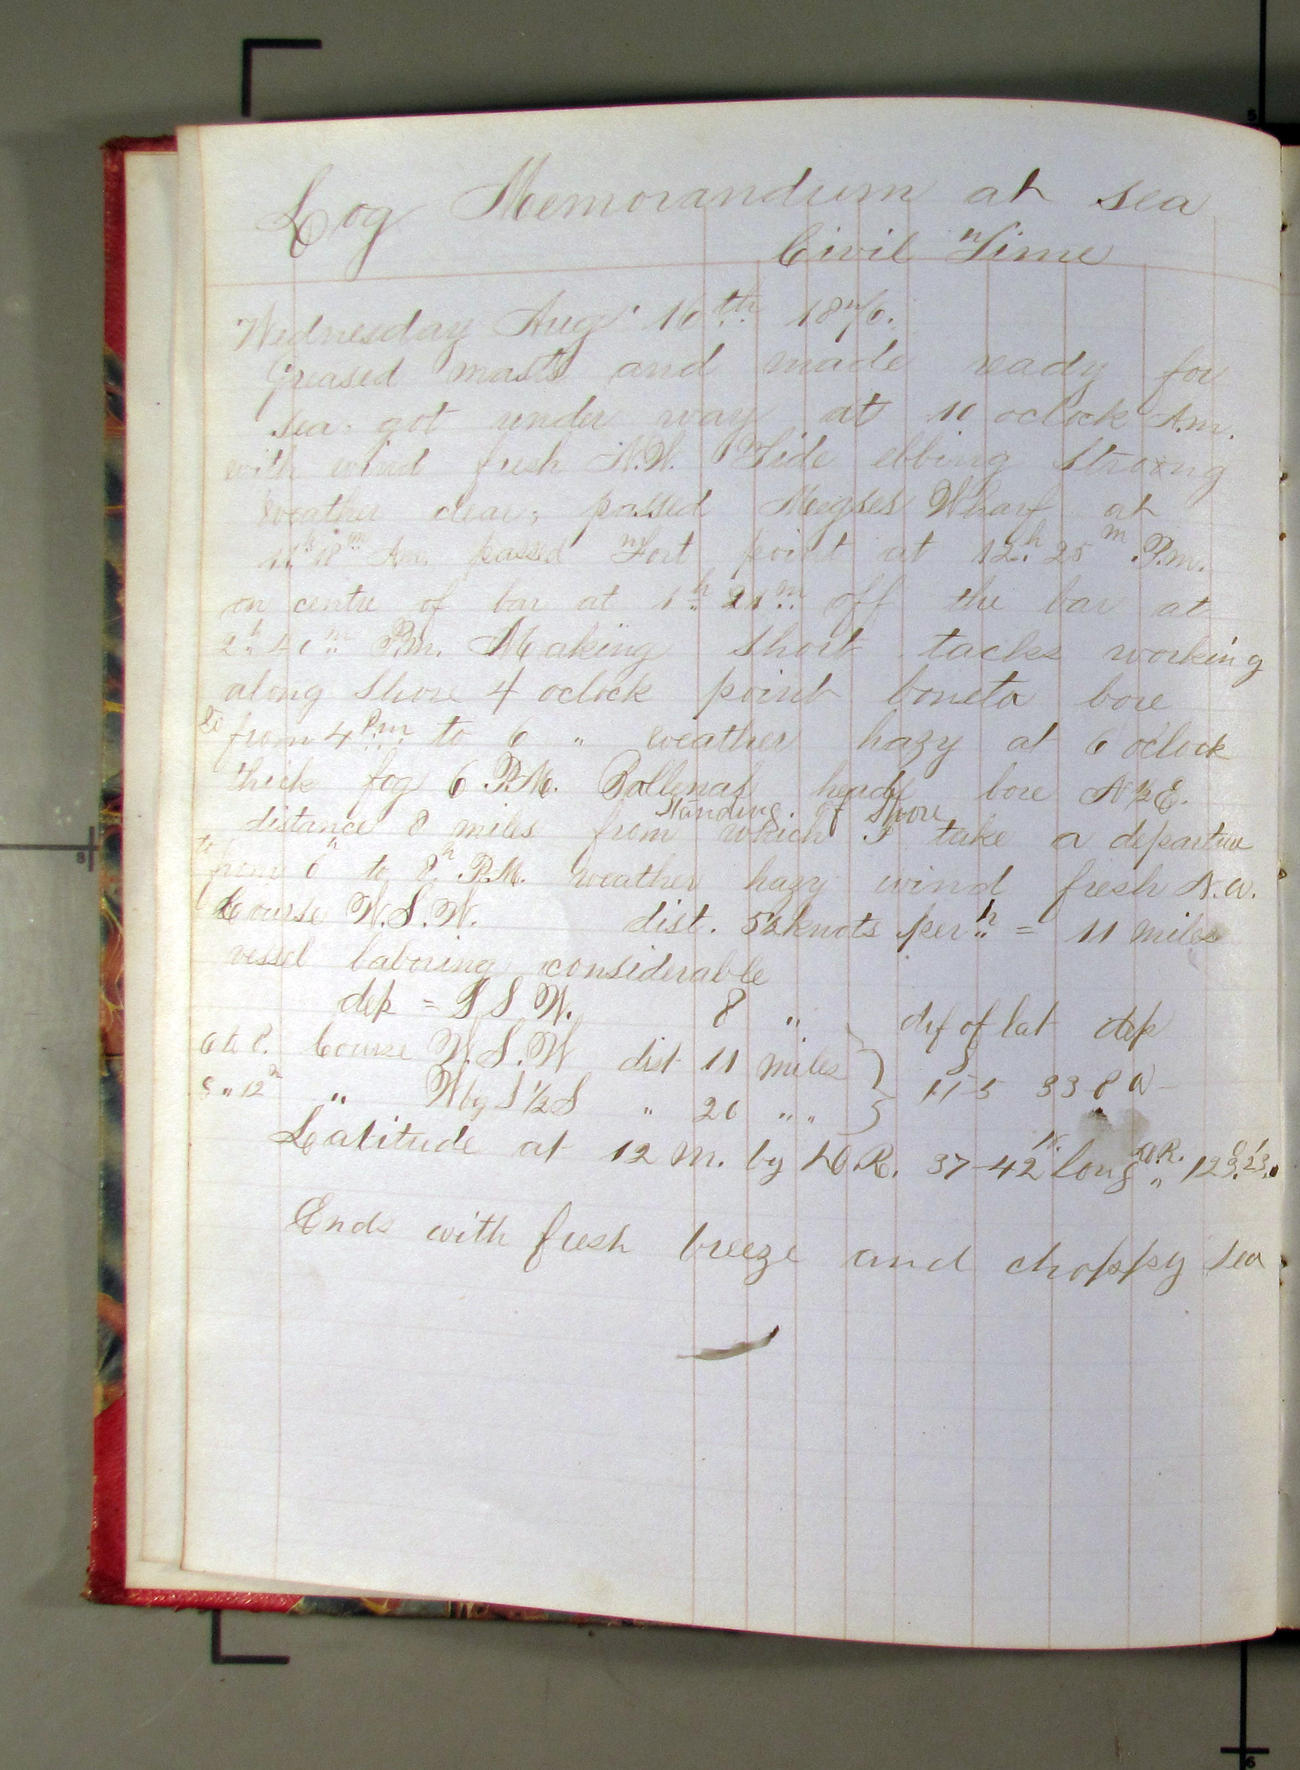 Log Memorandum at sea
Civil Time
Wednesday Aug' 16th 1876.
Greased masts and made ready for
sea. got under way at 10 oclock A.m.
with wind fresh N.W. Tide ebbing strong
weather clear; passed Meigses Wharf at
11h 18m Am. passed Fort point at 12h 25m P.m.
on centre of bar at 1h 21m off the bar at
2h 40m P.m. Making short tacks working
along shore 4 oclock point boneta bore
from 4 P.m to 6 " weather hazy at 6 oclock
thick fog 6 P.M. Bollenas heads bore N½E.
standing of shore
distance 8 miles from which I take a departure
from 6h to 8h P.M. weather hazy wind fresh N.W.
Course W.S.W. dist. 5½ knots per h = 11 miles
vessel laboring considerable
dep = S S W. 8 " dif of lat dep
6 to 8. Course W.S.W dist 11 miles S
8 " 12h " W by S ½ S " 20 " " 11-5 33 8 W
Latitude at 12 m. by D.R. 37-42 N. long D.R. " 123° 23'
Ends with fresh breeze and choppy sea